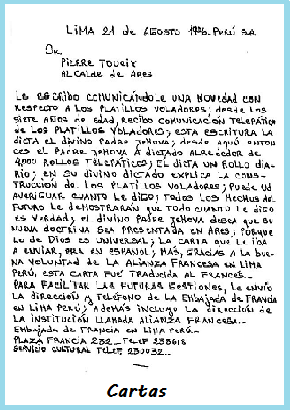 LIMA 21 DE AGOSTO 1976. PERÚ S.A.
DR,
PIERRE TOUCIX
ALCALDE DE ARES
LE ESCRIBO COMUNICÁNDOLE UNA NOVEDAD CON
RESPECTO A LOS PLATILLOS VOLADORES; DESDE LOS
SIETE AÑOS DE EDAD, RECIBO COMUNICACIÓN TELEPÁTICA
DE LOS PLATILLOS VOLADORES; ESTA ESCRITURA LA
DICTA EL DIVINO PADRE JEHOVA; DESDE AQUEL ENTON-
CES EL PADRE JEHOVA A DICTADO ALREDEDOR DE
4,000 ROLLOS TELEPÁTICOS; EL DICTA UN ROLLO DIA-
RIO; EN SU DIVINO DICTADO EXPLICA LA CONS-
TRUCCIÓN DE LOS PLATILLOS VOLADORES; PUEDE UD
AVERIGUAR CUANTO LE DIGO; TODOS LOS HECHOS DEL
FUTURO LE DEMOSTRARÁN QUE TODO CUANTO LE DIGO
ES VERDAD; EL DIVINO PADRE JEHOVA DESEA QUE SU
NUEVA DOCTRINA SEA PRESENTADA EN ARES, PORQUE
LO DE DIOS ES UNIVERSAL; LA CARTA QUE LE IBA
A ENVIAR, ERA EN ESPAÑOL; MÁS, GRACIAS A LA BUE-
NA VOLUNTAD DE LA ALIANZA FRANCESA EN LIMA
PERÚ, ESTA CARTA FUÉ TRADUCIDA AL FRANCÉS.
PARA FACILITAR LAS FUTURAS GESTIONES, LE ENVÍO
LA DIRECCIÓN Y TELÉFONO DE LA EMBAJADA DE FRANCIA
EN LIMA PERÚ; ADEMÁS INCLUYO LA DIRECCIÓN DE
LA INSTITUCIÓN LLAMADA ALIANZA FRANCESA.-
EMBAJADA DE FRANCIA EN LIMA PERÚ.-
PLAZA FRANCIA 232 - TELEF 235618
SERVICIO CULTURAL TELEF 230032.-
Cartas